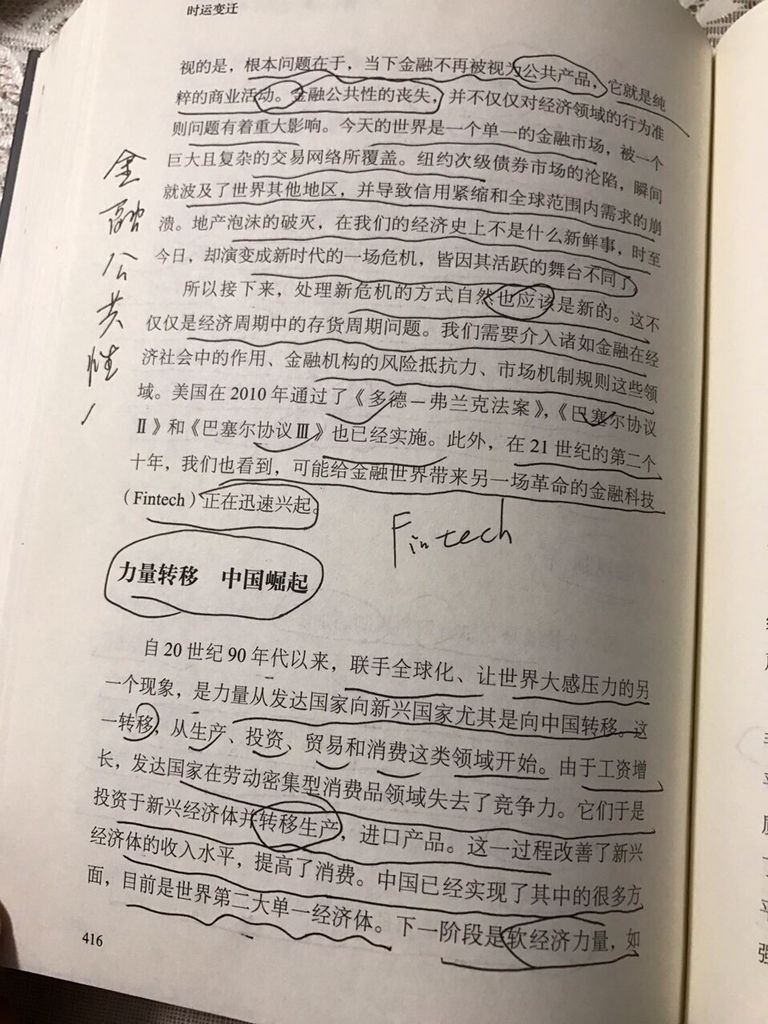 时运变迁
视的是，根本问题在于，当下金融不再被视为公共产品，它就是纯
粹的商业活动。金融公共性的丧失，并不仅仅对经济领域的行为准
则问题有着重大影响。今天的世界是一个单一的金融市场，被一个
巨大且复杂的交易网络所覆盖。纽约次级债券市场的沦陷，瞬间
就波及了世界其他地区，并导致信用紧缩和全球范围内需求的崩
溃。地产泡沫的破灭，在我们的经济史上不是什么新鲜事，时至
今日，却演变成新时代的一场危机，皆因其活跃的舞台不同了
所以接下来，处理新危机的方式自然也应该是新的。这不
仅仅是经济周期中的存货周期问题。我们需要介入诸如金融在经
济社会中的作用、金融机构的风险抵抗力、市场机制规则这些领
域。美国在2010年通过了《多德－弗兰克法案》，《巴塞尔协议
Ⅱ》和《巴塞尔协议Ⅲ》也已经实施。此外，在21世纪的第二个
十年，我们也看到，可能给金融世界带来另一场革命的金融科技
（Fintech）正在迅速兴起。
金融公共性
Fintech
力量转移 中国崛起
自20世纪90年代以来，联手全球化、让世界大感压力的另
一个现象，是力量从发达国家向新兴国家尤其是向中国转移。这
一转移，从生产、投资、贸易和消费这类领域开始。由于工资增
长，发达国家在劳动密集型消费品领域失去了竞争力。它们于是
投资于新兴经济体并转移生产，进口产品。这一过程改善了新兴
经济体的收入水平，提高了消费。中国已经实现了其中的很多方
面，目前是世界第二大单一经济体。下一阶段是软经济力量，如
416